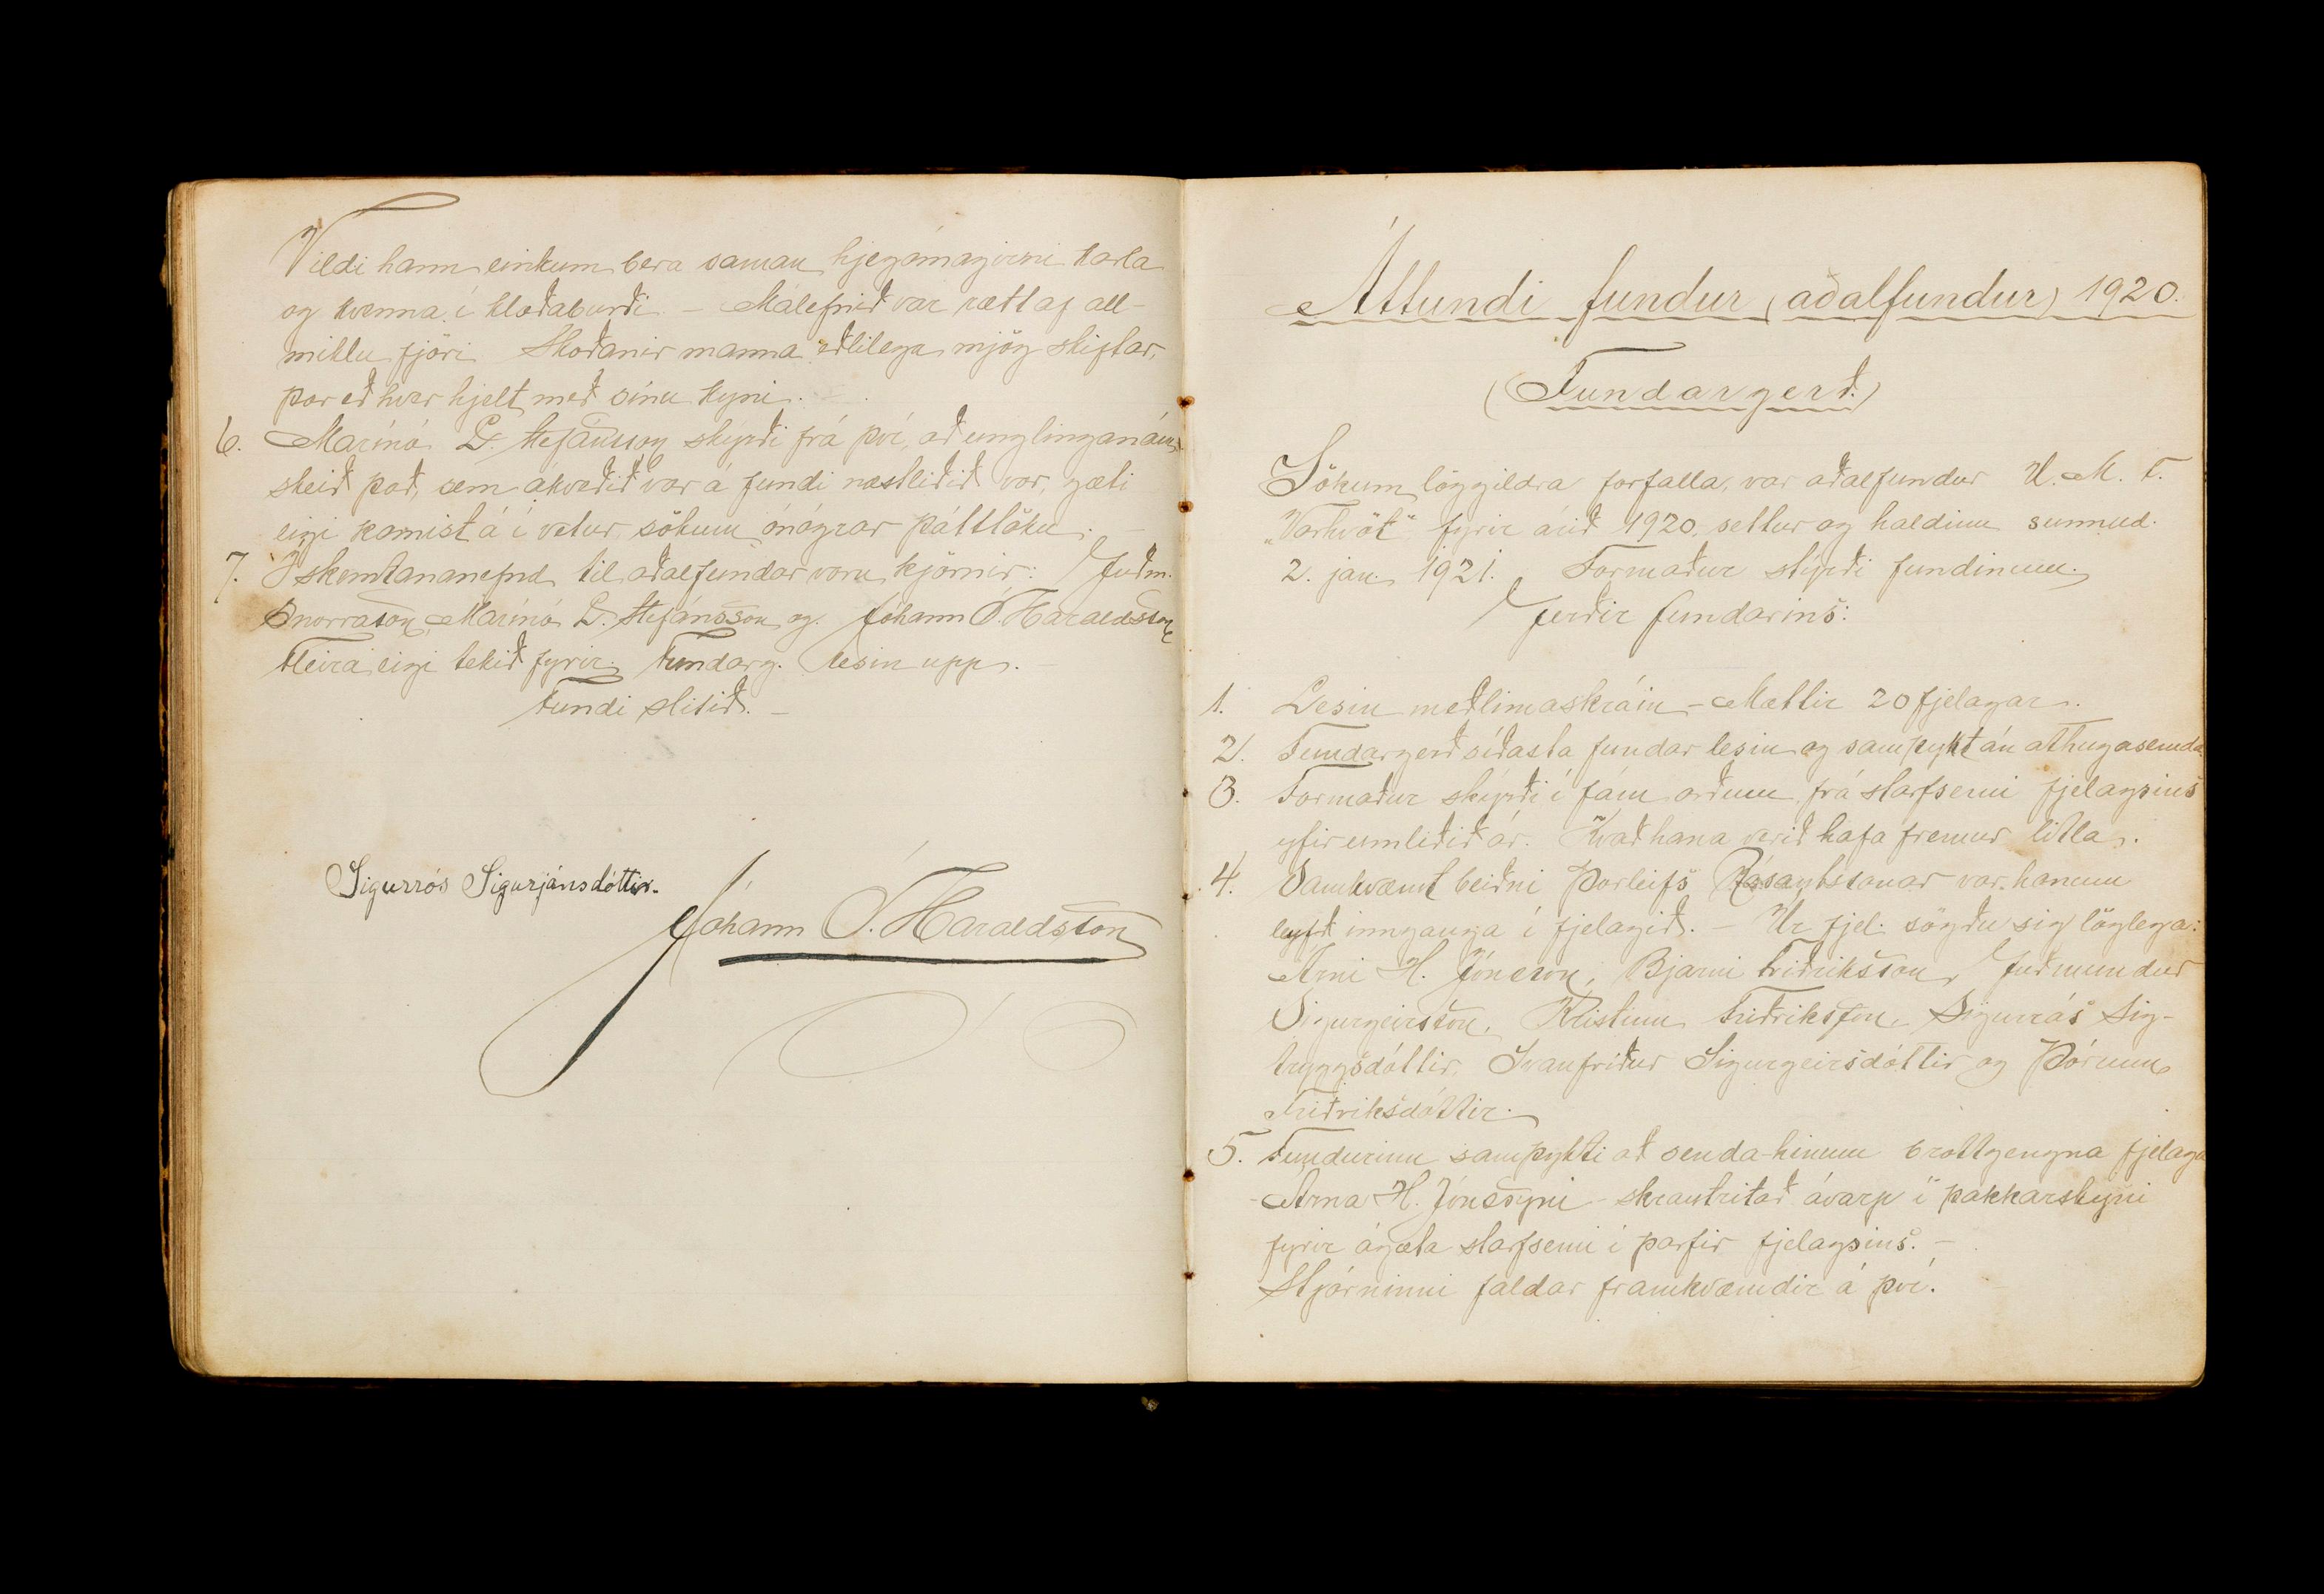 Vildi hann einkum bera saman hjegómagirni karla
og kvenna í klæðaburði. – Málefnið var rætt af all-
miklu fjöri. Skoðanir manna eðlilega mjög skiftar,
þar eð hver hjelt með sínu kyni. –
6. Marínó L. Stefánsson skýrði frá því, að unglinganám-
skeið það, sem ákveðið var á fundi næstliðið vor, gæti
eigi komist á í vetur sökum ónógrar þátttöku. –
7. Í skemtananefnd til aðalfundar voru kjörnir: Guðm.
Snorrason, Marínó L. Stefánsson og Jóhann Ó. Haraldsson
Fleira eigi tekið fyrir. Fundarg. lesin upp.
Fundi slitið. –
Sigurrós Sigurjónsdóttir.
Jóhann Ó. Haraldsson
Áttundi fundur (aðalfundur) 1920.
(Fundargerð.)
Sökum löggildra forfalla, var aðalfundur U. M. F.
„Vorhvöt“ fyrir árið 1920, settur og haldinn sunnud.
2. jan. 1921. Formaður stýrði fundinum.
Gerðir fundarins:
1. Lesin meðlimaskráin – Mættir 20 fjelagar.
2. Fundargerð síðasta fundar lesin og samþykt án athugasemda
3. Formaður skýrði í fám orðum frá starfsemi fjelagsins
yfir umliðið ár. Kvað hana verið hafa fremur litla.
4. Samkvæmt beiðni Þorleifs Rósantssonar var honum
leyfð innganga í fjelagið. – Úr fjel. sögðu sig löglega:
Árni H. Jónsson, Bjarni Friðriksson, Guðmundur
Sigurgeirsson, Kristinn Friðriksson, Sigurrós Sig-
tryggsdóttir, Svanfríður Sigurgeirsdóttir og Þórunn
Friðriksdóttir.
5. Fundurinn samþykti að senda hinum brottgengna fjelaga
Árna H. Jónssyni skrautritað ávarp í þakkarskyni
fyrir ágæta starfsemi í þarfir fjelagsins. –
Stjórninni faldar framkvæmdir á því.